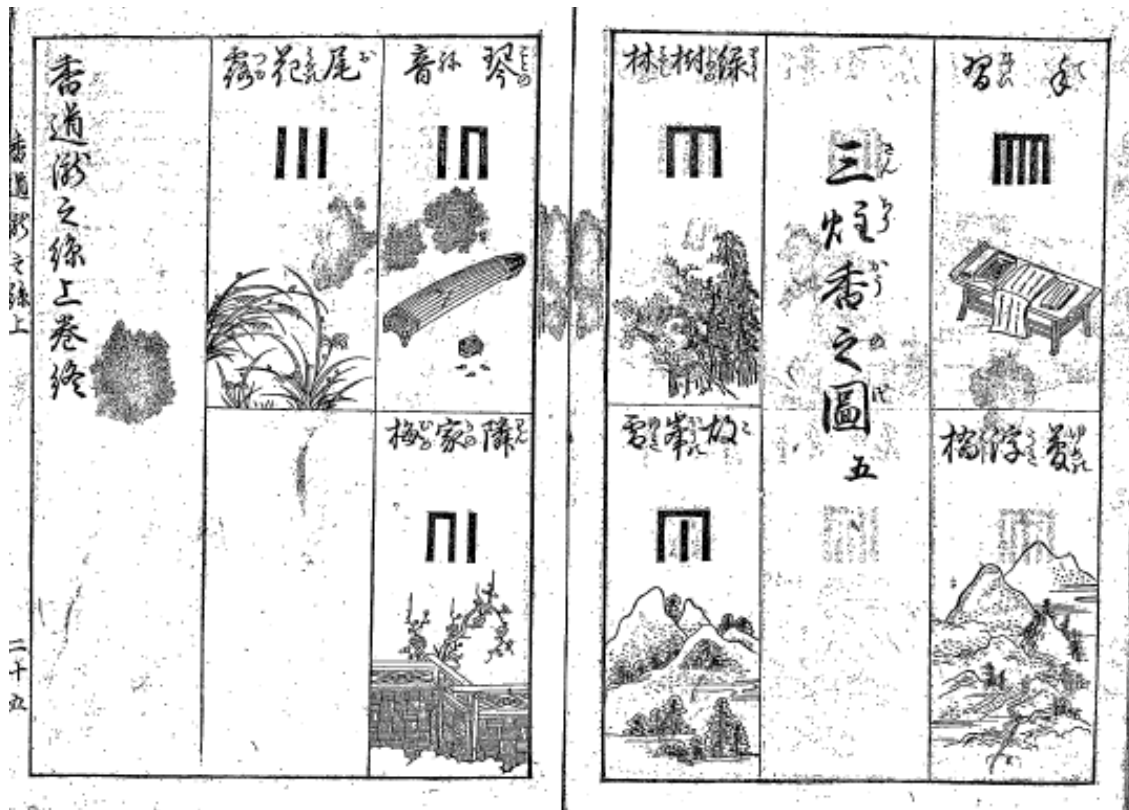 手習
夢浮橋
三炷香之圖 五
緑樹林
孤峯雪
琴音
隣家梅
尾花露
香道瀧之絲上巻終
香道瀧之絲上
二十五